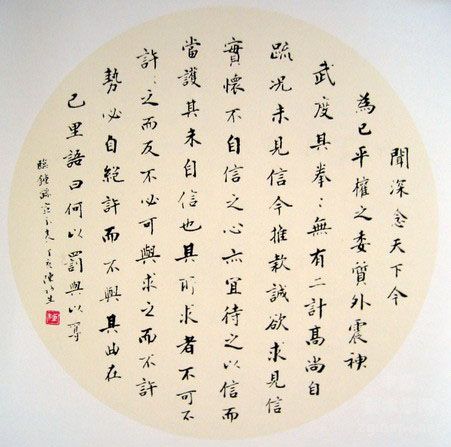 聞深念天下今
為已平權之委質外震神
武度其拳:無有二計高尚自
疏况未見信今推款誠欲求見信
實懷不自信之心亦宜待之以信而
當護其未自信也其所求者不可不
許:之而反不必可與求之而不許
勢必自絕許而不與其曲在
己里語曰何以罰與以奪
臨鍾繇宣示表 丁亥 陳